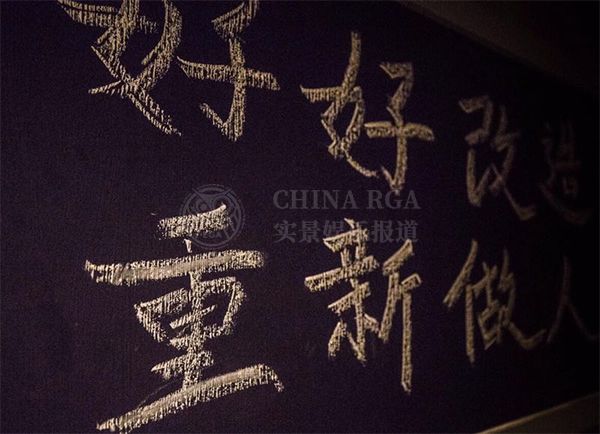 好好改造
重新做人
CHINA RGA
实景娱乐报道